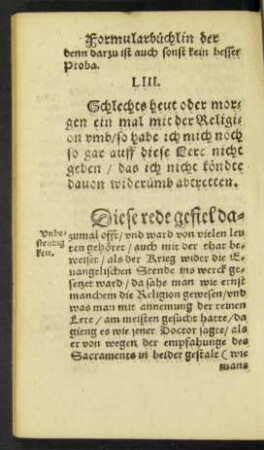 Formularbüchlin der
denn darzu ist auch sonst kein besser
Proba.
LIII.
Schlechts heut oder mor-
gen ein mal mit der Religi-
on vmb/so habe ich mich noch
so gar auff diese Lere nicht
geben / das ich nicht köndte
dauon widerümb abtretten.
Diese rede gefiel da-
Vnbe-
stendig
ken.
zumal offt/ vnd ward von vielen leu
ten gehöret / auch mit der that be-
weiset / als der Krieg wider die E-
uangelischen Stende ins werck ge-
setzet ward / da sahe man wie ernst
manchem die Religion gewesen/ vnd
was man mit annemung der reinen
Lere / am meisten gesucht hatte/ da
gieng es wie jener Doctor sagte/ als
er von wegen der empfahunge des
Sacraments in beider gestalt ( wie
mans